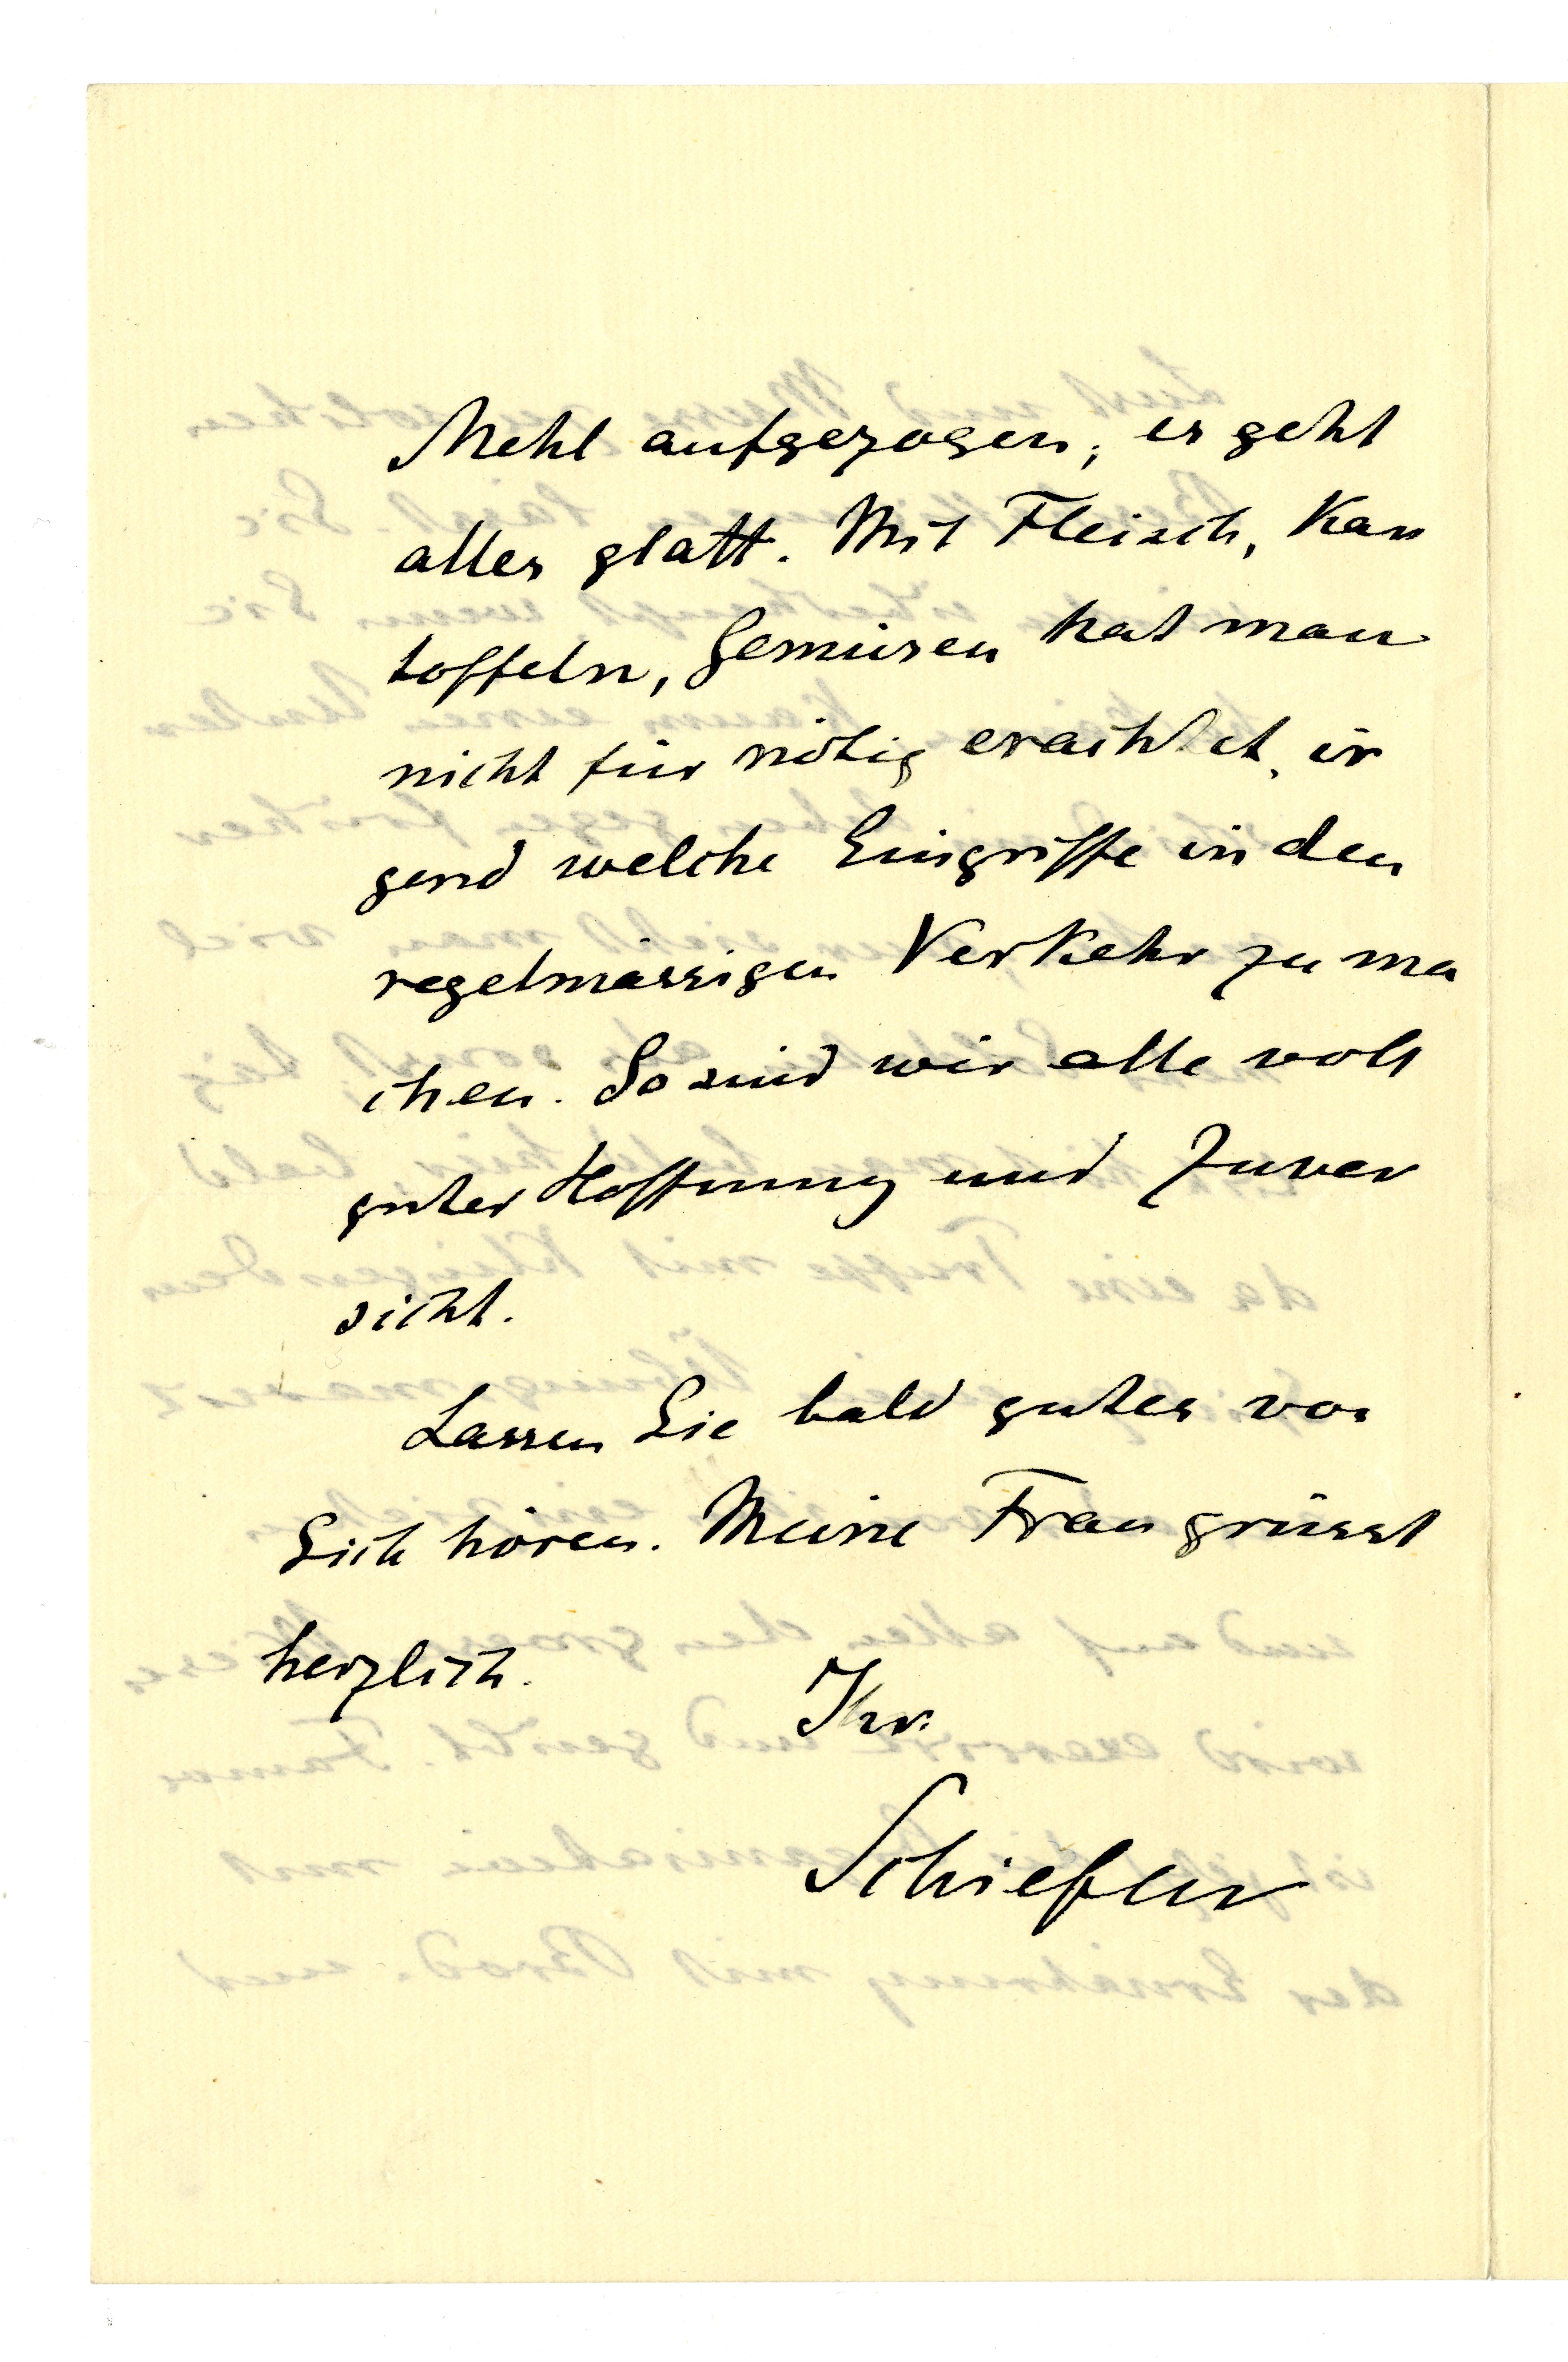 Mehl aufgezogen; es geht
alles glatt. Mit Fleisch, Kar
toffeln, Gemüsen hat man
nicht für nötig erachtet, ir
gend welche Eingriffe in den
regelmässigen Verkehr zu ma
chen. So sind wir alle voll
guter Hoffnung und Zuver
sicht.
Lassen Sie bald gutes von
Sich hören. Meine Frau grüsst
herzlich.
Ihr.
Schiefler